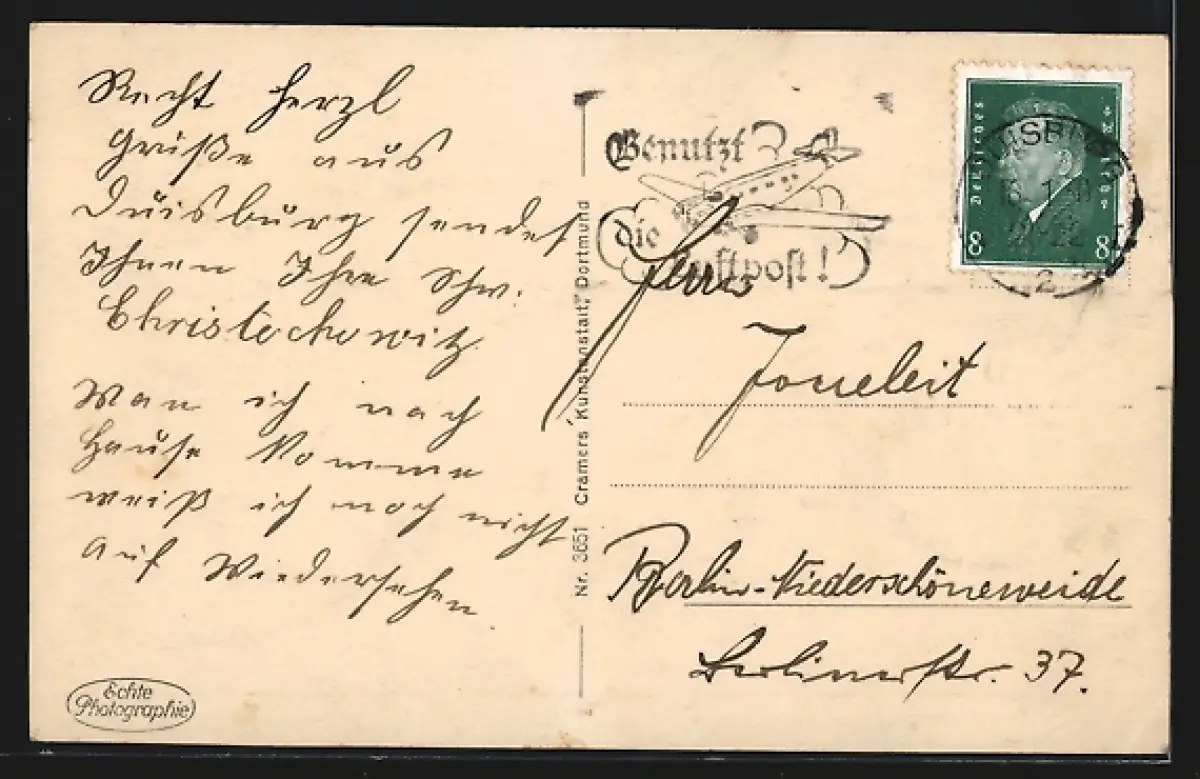 Recht herzl
Grüße aus
Duisburg sendet
Ihnen Ihre Schw.
Christochowitz
Wan ich nach
Hause komme
weiß ich noch nicht
Auf Wiedersehen
Echte
Photographie
Nr. 3651 Cramers Kunstanstalt, Dortmund
Benutzt
die
Luftpost!
Deutsches Reich
8 8
Joneleit
Berlin-Niederschöneweide
Berlinerstr. 37.